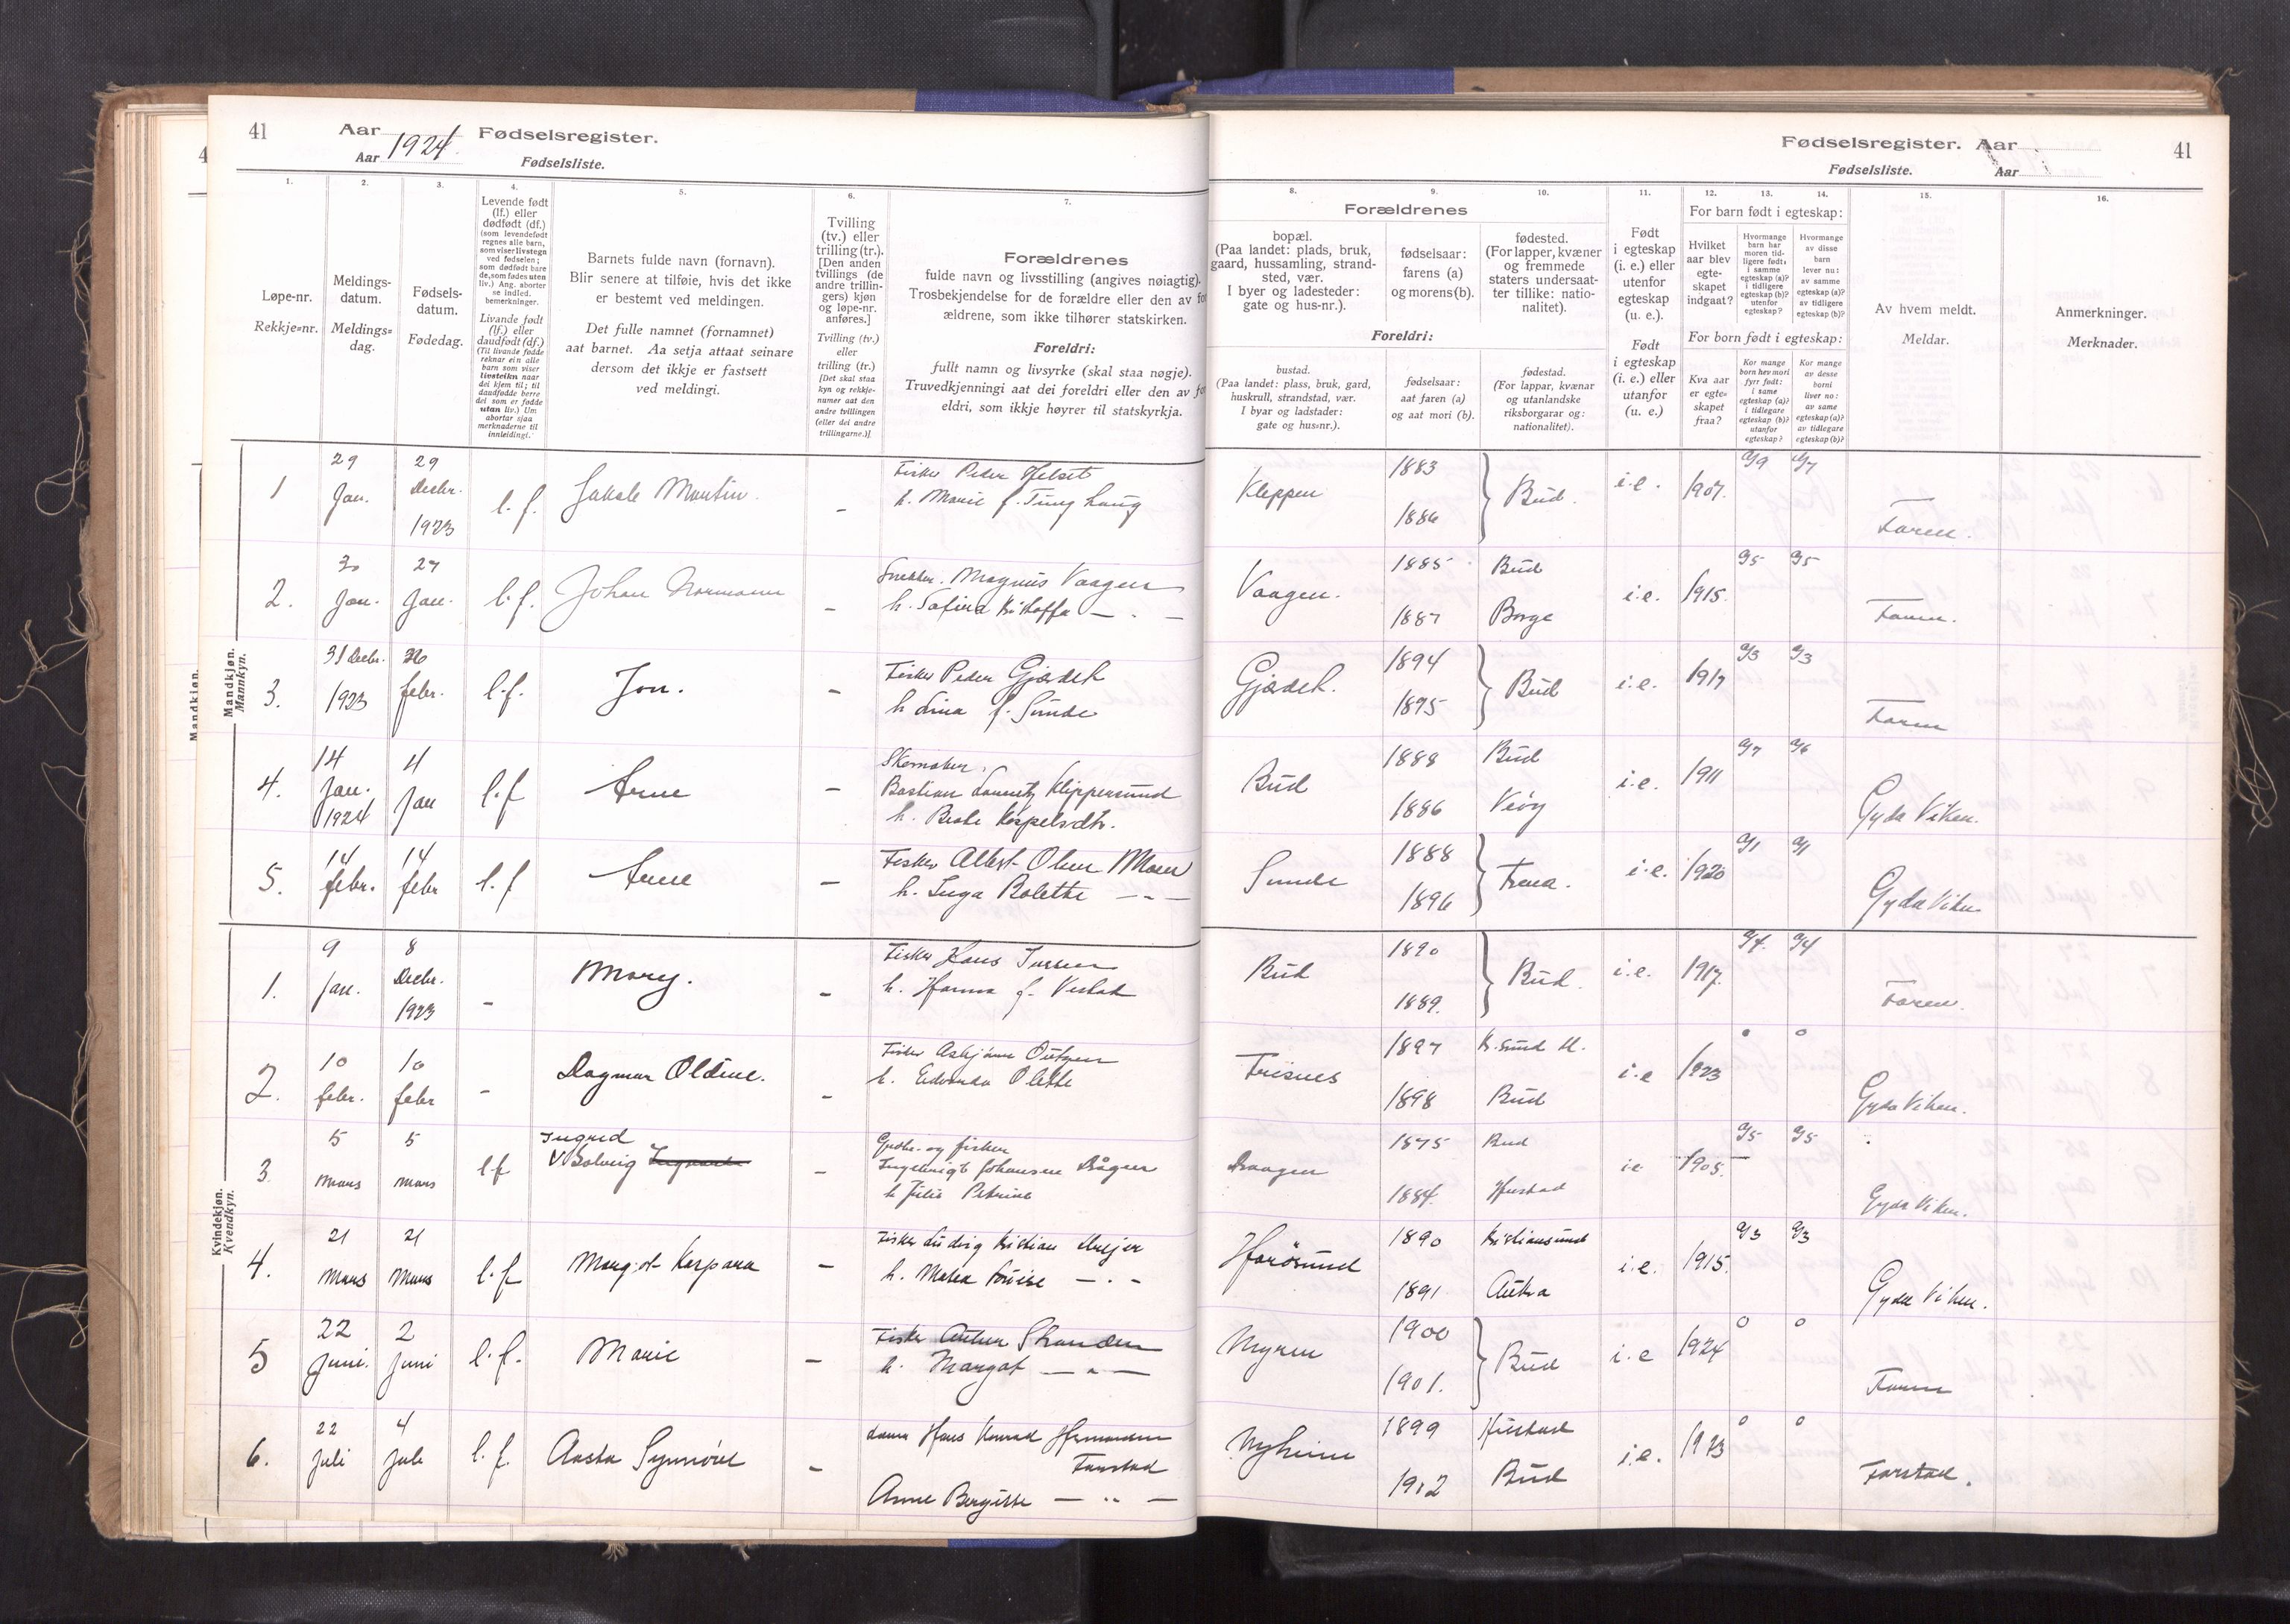 41
Aar 1924 Fødselsregister.
Aar
Fødselsliste.
Fødselsregister. Aar
Fødselsliste.
Aar
41
1.
2.
3.
4.
5.
6.
7.
8.
9.
10.
11.
12.
13.
14.
15.
16.
Løpe-nr.
Rekkje=nr.
Meldings-
datum.
Meldings=
dag.
Fødsels-
datum.
Fødedag.
Levende født
(lf.) eller
dødfødt (df.)
(som levendefødt
regnes alle barn,
som viser livstegn
ved fødselen;
som dødfødt bare
de, som fødes uten
liv.) Ang. aborter
se indled.
bemerkninger.
Livande født
(lf.) eller
daudfødt (df.)
(Til livande fødde
reknar ein alle
barn som viser
livsteikn naar
dei kjem til; til
daudfødde berre
dei som er fødde
utan liv.) Um
abortar sjaa
merknaderne til
innleidingi.
Barnets fulde navn (fornavn).
Blir senere at tilføie, hvis det ikke
er bestemt ved meldingen.
Det fulle namnet (fornamnet)
aat barnet. Aa setja attaat seinare
dersom det ikkje er fastsett
ved meldingi.
Tvilling
(tv.) eller
trilling(tr.).
[Den anden
tvillings (de
andre trillin-
gers) kjøn
og løpe-nr.
anføres.]
Tvilling (tv.)
eller
trilling (tr.)
[Det skal staa
kyn og rekkje-
numer aat den
andre tvillingen
(eller dei andre
trillingarne.)]
Forældrenes
fulde navn og livsstilling (angives nøiagtig).
Trosbekjendelse for de forældre eller den av for
ældrene, som ikke tilhører statskirken.
Foreldri:
fullt namn og livsyrke (skal staa nøgje).
Truvedkjenningi aat dei foreldri eller den av
eldri, som ikkje høyrer til statskyrkja.
Forældrenes
bopæl.
(Paa landet: plads, bruk,
gaard, hussamling, strand-
sted, vær.
I byer og ladesteder:
gate og hus-nr.).
fødselsaar:
farens (a)
og morens (b).
fødested.
(For lapper, kvæner
og fremmede
staters undersaat-
ter tillike: natio-
nalitet).
Foreldri:
bustad.
(Paa landet: plass, bruk, gard,
huskrull, strandstad, vær.
I byar og ladstader:
gate og hus=nr.).
fødselsaar:
aat faren (a)
og aat mori (b).
fødestad.
(For lappar, kvænar
og utanlandske
riksborgarar og:
nationalitet).
Født
i egteskap
(i. e.) eller
utenfor
egteskap
(u. e.).
Født
i egteskap
(i. e.) eller
utanfor
(u. e.)
For barn født i egteskap:
Hvilket
aar blev
egte-
skapet
indgaat?
Hvormange
barn har
moren tid-
ligere født:
i samme
egteskap (a)?
i tidligere
egteskap (b)?
utenfor
egteskap?
Hvormange
av disse
barn
lever nu:
av samme
egteskap (a)?
av tidligere
egteskap (b)?
For born født i egteskap:
Kva aar
er egte=
skapet
fraa?
Kor mange
born hev mori
fyrr født:
i same
egteskap (a)?
i tidlegare
egteskap (b)?
utanfor
egteskap?
Kor mange
av desse
borni
liver no:
av same
egteskap (a)?
av tidlegare
egteskap (b)?
Av hvem meldt.
Meldar.
Anmerkninger.
Merknader.
Mandkjøn.
Mandkjøn.
Mannkyn.
1 29 Jan. 29 Decbr. 1923 l. f. Jakob Martin. -
Fisker Peder Helset
h. Marie f. Tunghaug
Kleppen 1883 1886 Bud. i.e. 1907. a/9 a/7 Faren.
2. 30 Jan. 27 Jan. l. f. Johan Normann -
Snekker. Magnus Vaagen
h. Sofine Kristoffa — " —
Vaagen. 1885 1887 Bud Borge i.e. 1915. a/5 a/5 Faren.
3. 31 Decbr. 1923 febr. l. f. Jon. -
Fisker Peder Gjødeh
h Lina f. Sunde
Gjødeh. 1894 1895 Bud i.e. 1917 a/3 a/3 Faren
4. 14 Jan. 1924 4 Jan l. f Arne -
Skomaker.
Bastian Lauritz Klippersund
h. Beate Kaspelsdtr.
Bud 1888 1886 Bud Veøy i.e. 1911 a/7 a/6 Gyda Viken.
5. 14 febr. 14 febr l. f Arne -
Fisker Albert Olsen Moen
h. Inga Bolette — " —
Sunde 1888 1896 Frena. i.e. 1920 a/1 a/1 Gyda Viken
Kvindekjøn.
Kvendkyn.
1. 9 Jan. 8 Decbr. 1923 - Mary. -
Fisker Hans Iversen
h. Hanna f. Vestad
Bud 1890 1889. Bud. i.e. 1917. a/4. a/4 Faren.
2. 10 febr. 10 febr - Dagmar Oldine. -
Fisker Asbjørn
h. Edvarda Olette
1897 1898 K.sund N. Bud i.e 1923 0 0 Gyda Viken.
3. 5 mars 5 mars l f Ingrid
V Solveig -
Gbr. og fisker
Ingebrigt Johansen Vågen
h Julie Petrine
Vaagen 1875 1884. Bud Hustad i e 1905. a/5 a/5 Gyda Viken.
4. 21 Mars 21 Mars l. f Margot Kaspara -
Fisker Ludvig Kristian
h. Matea Lovise — " —
Harøsund 1890 1891 Kristiansund Aukra i.e. 1915. a/3 a/3 Gyda Viken.
5 22 Juni. 2 Juni l. f. Marie -
Fisker Arthur Stranden
h. Margot — " —
Myren 1900 1901. Bud i.e 1924 0 0 Faren
6. 22 Juli 4 Juli l. f. Aasta Synnøve -
Hans Konrad Hermansen
Farstad
Anne Bergitte — " —
Nyheim 1899 1902 Hustad Bud i.e. 1923 0 0 Farstad.